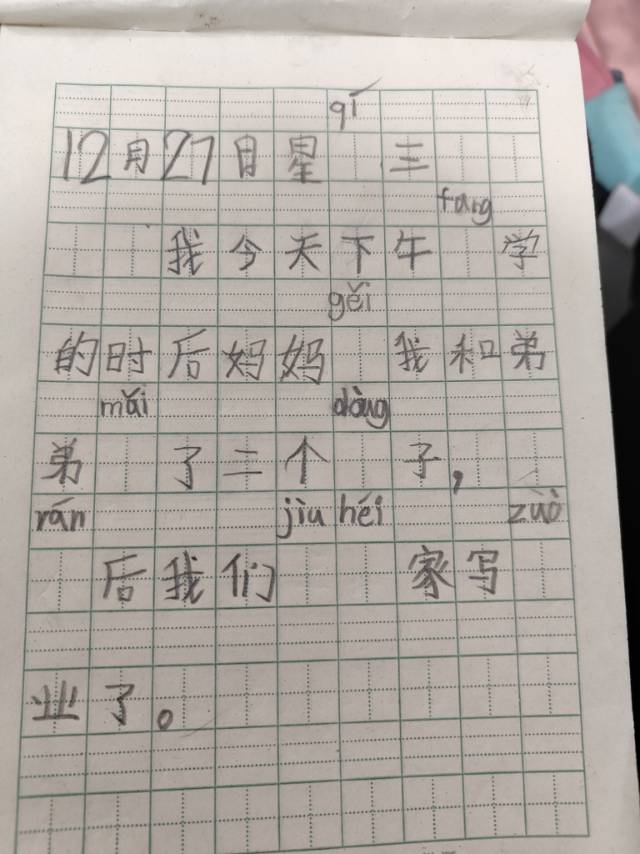 qí
12月27日星 三
fang
我今天下午 学
gěi
的时后妈妈 我和弟
mǎi dàng
弟 了二个 子，
rán jìu héi zuò
后我们 家写
业了。